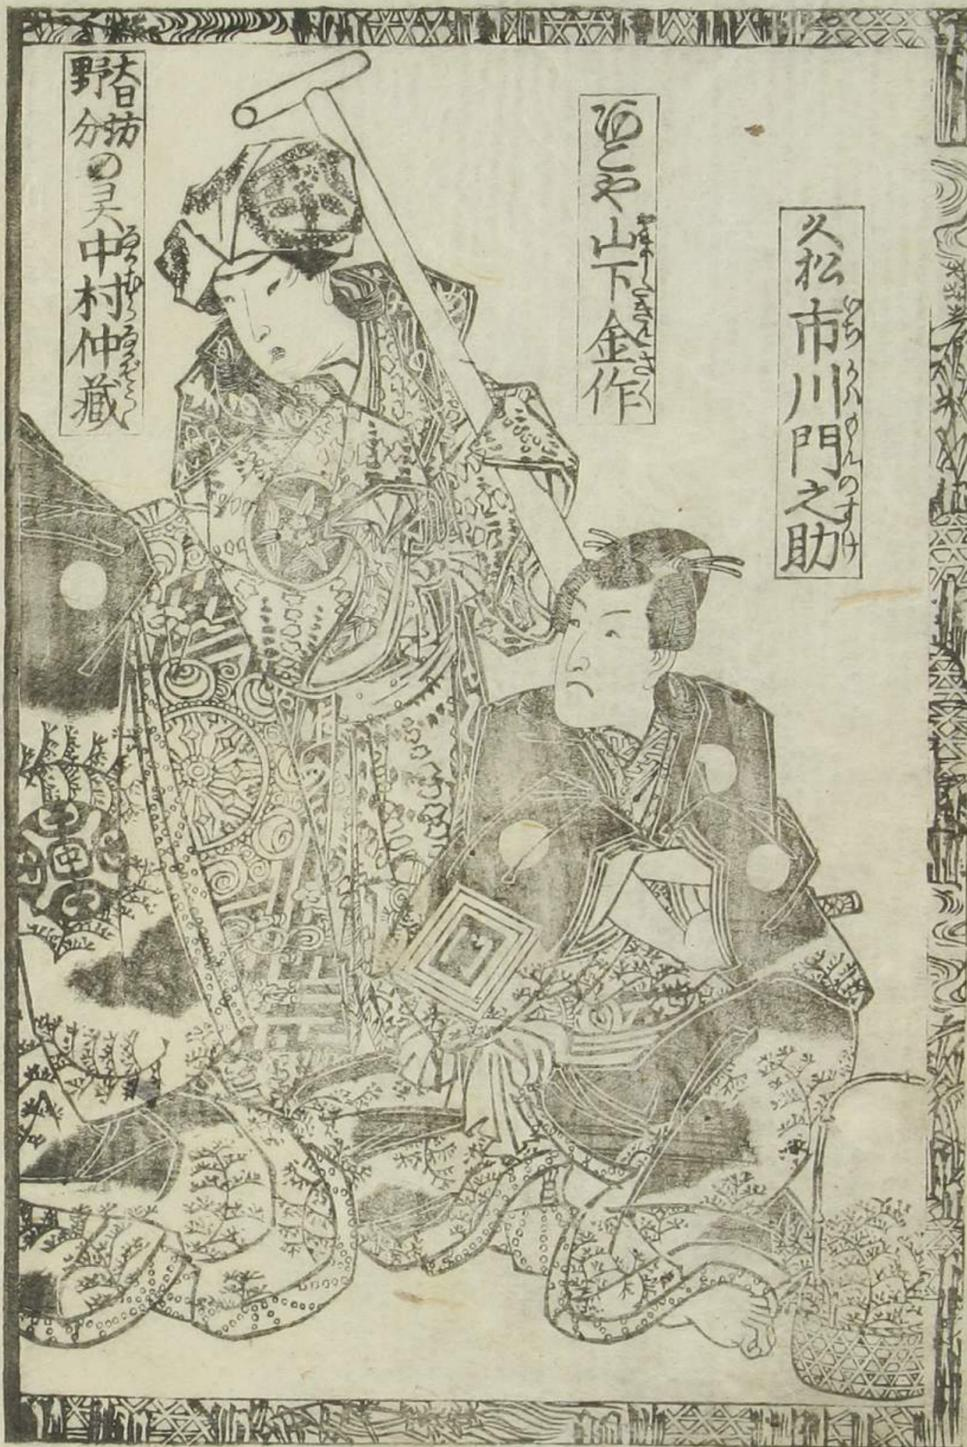 久松 市川門之助
いちかハもんのすけ
あこや 山下金作
やましたきんさく
大日坊
野分の灵 中村仲蔵
なかむらなかぞう